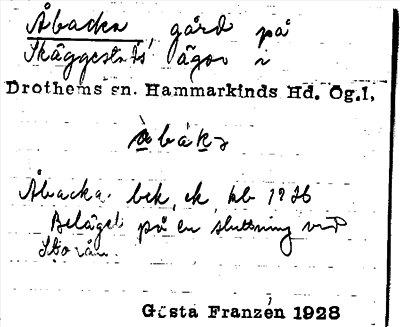 Åbacka, gård på
Skäggestads ägor i
Drothems sn. Hammarkinds Hd. Ög.l,
åbáka
Åbacka. bek, ek, kb 1786
Beläget på en sluttning vid
Storån.
Gösta Franzén 1928